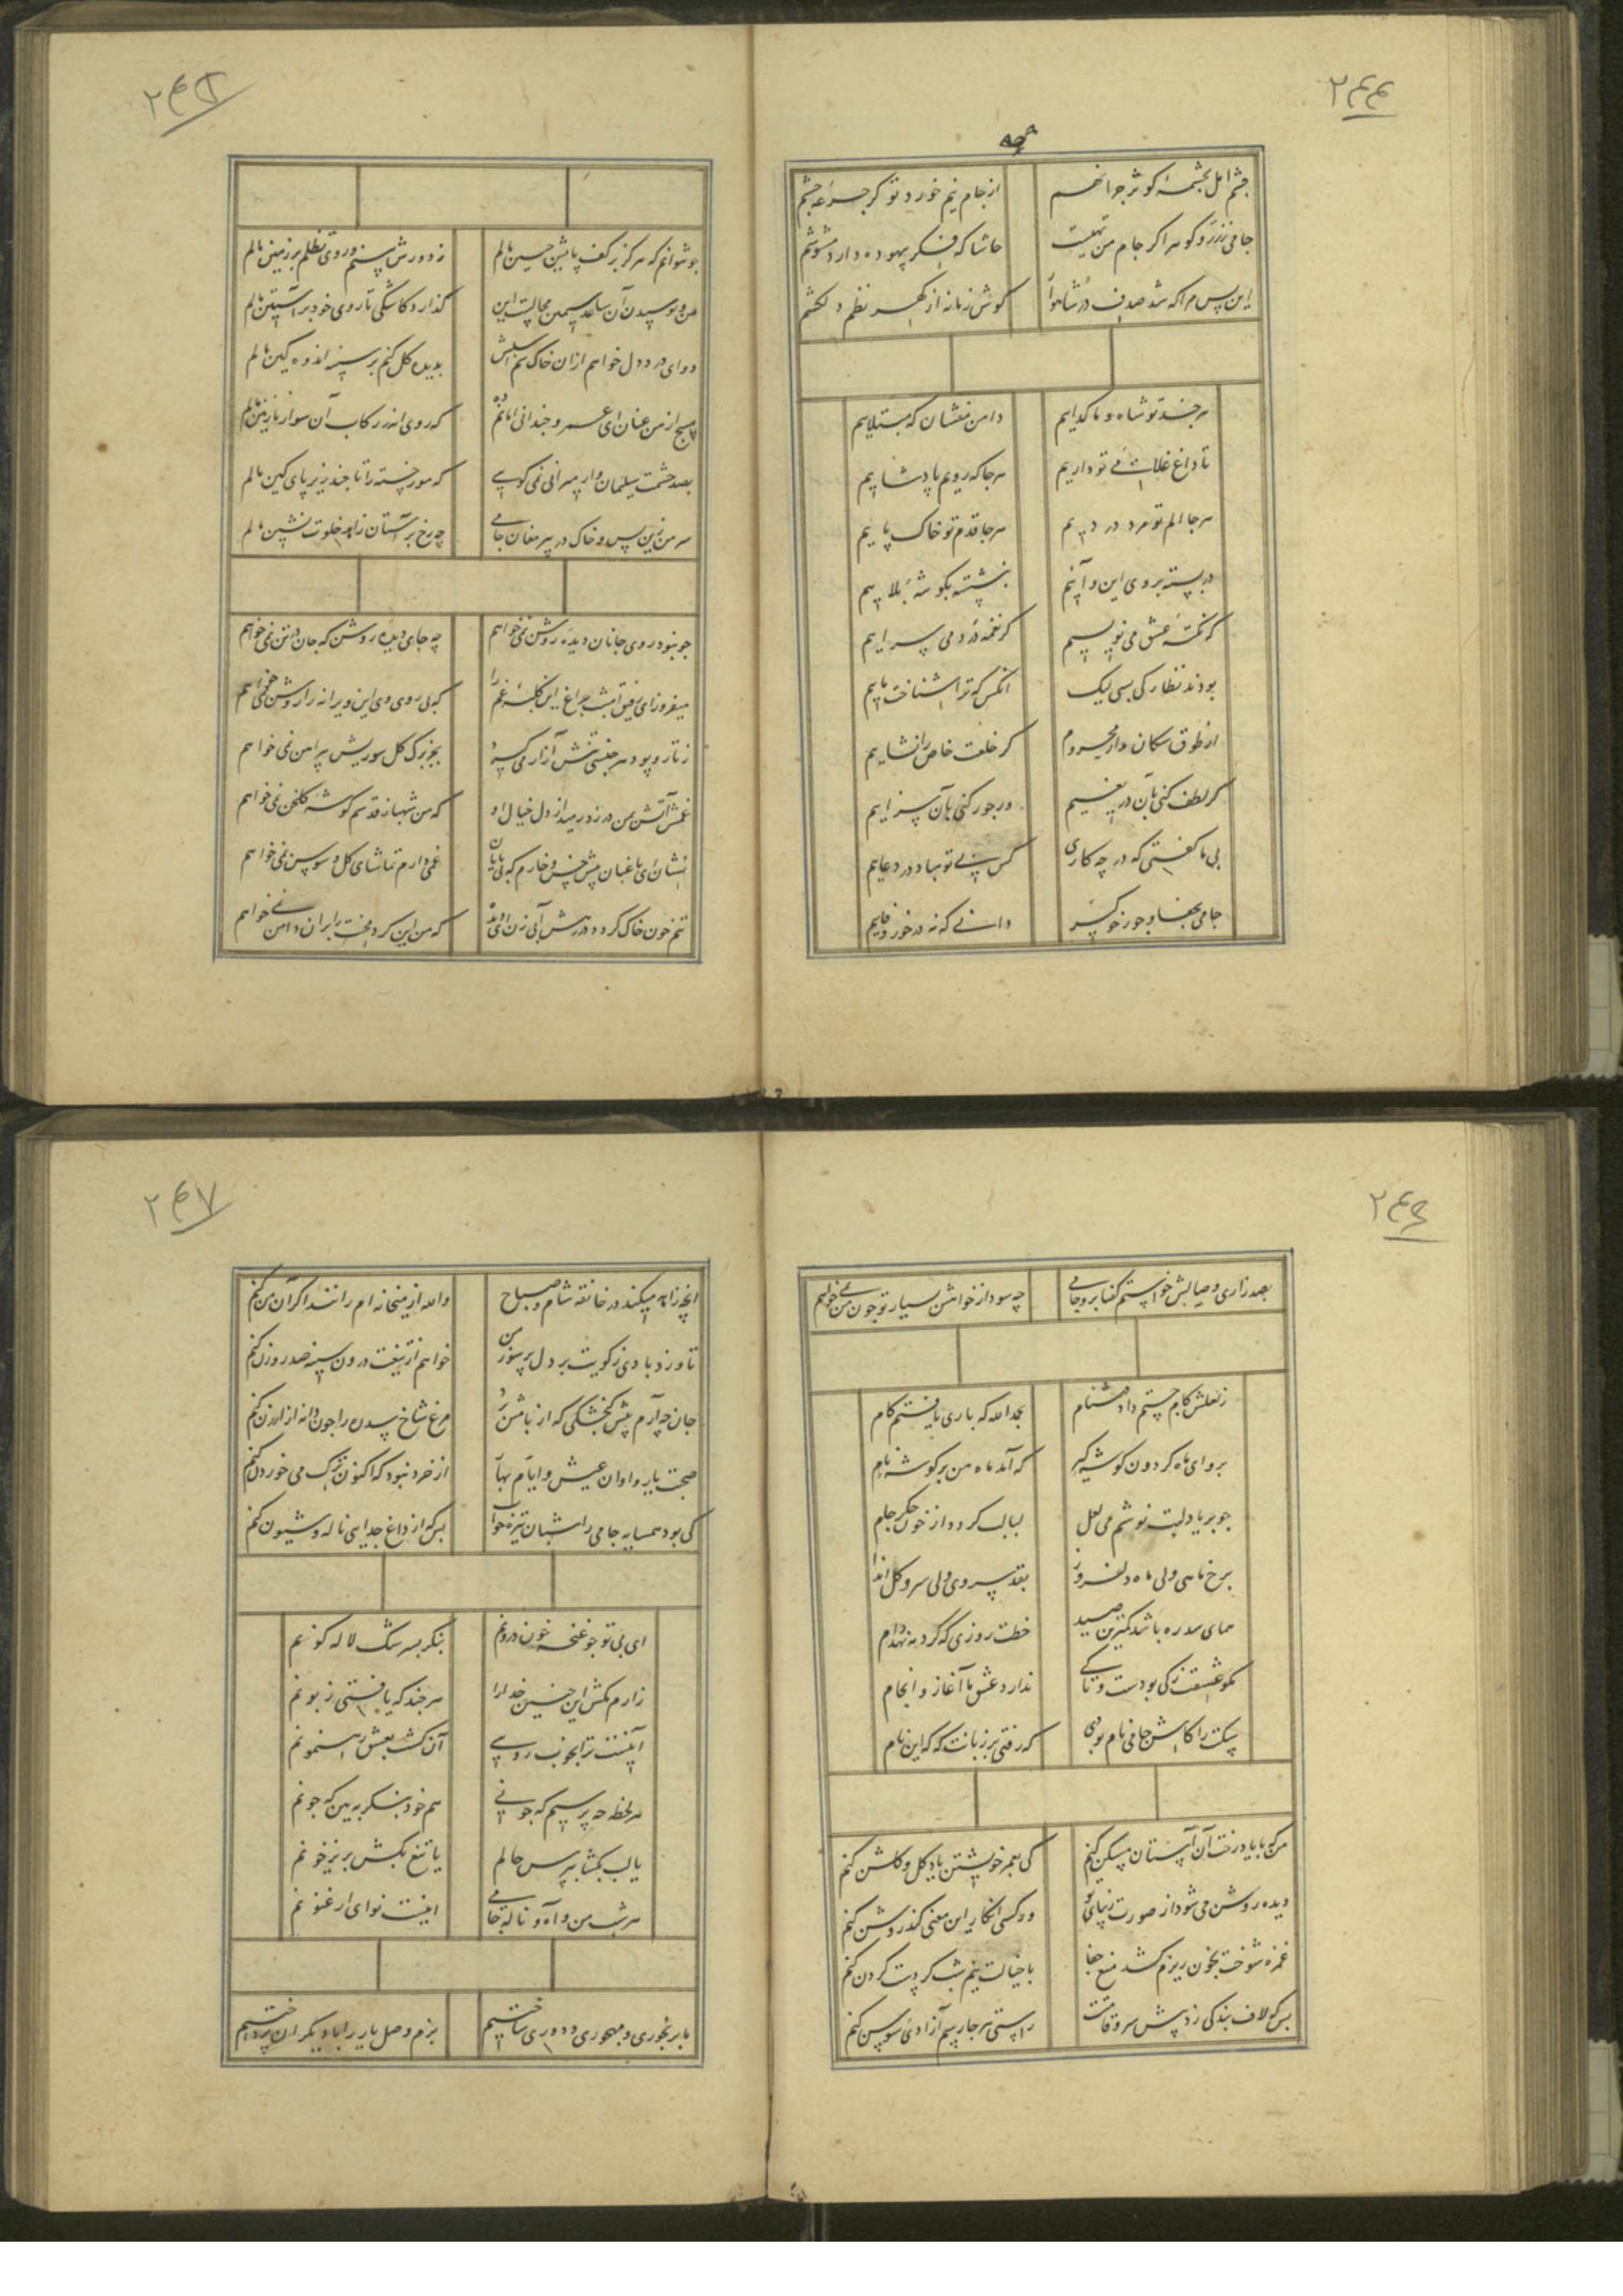 ۲۴۴
چشم امل بچشمهٔ کوثر چرا نهم
از جام نیم خورد تو گر جرعهٔ چشم
جامی زرد کو سر اگر جام من تهیست
حاشا که فکر بیهوده دارد مشوشم
این بس مرا که شد صدف در شاهوار
گوش زمانه از گهر نظم دلکشم
هر چند تو شاه و ما گداییم
دامن مفشان که مبتلاییم
تا داغ غلامی تو داریم
هر جا که رویم پادشاییم
هر جا الم تو مرد دردیم
هر جا قدم تو خاک پاییم
در بسته بروی این و آنیم
بنشسته بگوشهٔ بلاییم
گر نکتهٔ عشق می نویسیم
گر نغمهٔ درد می سراییم
بودند نظارگی بسی لیک
آنکس که ترا شناخت ماییم
از طوق سگان دار محروم
گر خلعت خاص را نشاییم
گر لطف کنی بآن در یغیم
ور جور کنی بآن سزاییم
بی ما گفتی که در چه کاری
کس بی تو مباد در دعاییم
جامی بجفا و جور خو گیر
دانی که نه در خور وفاییم
۲۴۵
چو نتوانم که هرگز بر کف پایش جبین مالم
ز دورش بینم و روی تظلم بر زمین مالم
من و بوسیدن آن ساعد سیمین محالست این
گذارد کاشکی تا روی خود بر آستین مالم
دوای درد دل خواهم از ان خاک سم اسبش
بدیده گل کنم بر سینهٔ اندوهگین مالم
مپیچ از من عنان ای عمر و چندانی امانم ده
که روی اندر رکاب آن سوار نازنین مالم
بصد حشمت سلیمان وار میرانی نمی گویی
که مور خسته را تا چند زیر پای کین مالم
سر من زین پس و خاک در پیر مغان جامی
چه رخ بر آستان زاهد خلوت نشین مالم
چو نبود روی جانان دیده روشن نمی خواهم
چه جای دیده روشن که جان در تن نمی خواهم
میفروز ای رفیق امشب چراغ این کلبهٔ غم را
که بی روی وی این ویرانه را روشن نمی خواهم
ز تار و پود هر جنسی تنش آزار می گیرد
بجز برگ گل سوریش پیراهن نمی خواهم
غمش آتش من در زد رمید از دل خیال او
که من شهباز قدسم گوشهٔ گلخن نمی خواهم
بنشان ای باغبان پیش خس و خارم که بی یاران
غمی دارم تماشای گل و سوسن نمی خواهم
تنم خون خاک گردد در رهش آبی زن ای دیده
که من این گرد محنت را بران دامن نمی خواهم
۲۴۶
بصد زاری وصالش خواستم گفتا برو جامی
چه سود از خواهش بسیار تو چون من نمی خواهم
ز لعلش کام جستم داد دشنام
بحمدالله که باری یافتم کام
برو ای ماه گردون گوشه گیر
که آمد ماه من بر گوشهٔ بام
چو بر یاد لبت نوشم می لعل
لبالب گردد از خون جگر جام
برخ ماهی ولی ماه دلفروز
بقد سروی ولی سرو گل اندام
همای سدره باشد کمترین صید
خطت روزی که گرد مه نهد دام
مگو عشقت ز کی بودست و تا کی
ندارد عشق ما آغاز و انجام
سگت را کاش جامی نام بودی
که رفتی بر زبانت گه گه این نام
من که با یاد رخت آن آستان مسکن کنم
کی بعمر خویشتن یاد گل و گلشن کنم
دیده روشن می شود از صورت زیبای تو
ور کسی انکار این معنی کند روشن کنم
غمزه شوخت بخون ریزم کشد تیغ جفا
با خیالت نیم شب گر دست در گردن کنم
بس که لاف بندگی زد پیش سرو قامتت
راستی هر جا رسیم آزادی سوسن کنم
۲۴۷
آنچه زاهد میکند در خانقه شام و صباح
والله از میخانه ام رانند اگر آن من کنم
تا وزد بادی ز کویت بر دل پرسوز من
خواهم از تیغت درون سینه صد روزن کنم
جان چه آرم پیش گنجشکی که از بامش پرد
مرغ شاخ سدره را چون دانه از ارزن کنم
صحبت یار و اوان عیش و ایام بهار
از خرد نبود که اکنون ترک می خوردن کنم
کی بود همسایه جامی را شبان تیره خواب
بس که از داغ جدایی ناله و شیون کنم
ای بی تو چو غنچه خون درونم
بنگر بسرشک لاله گونم
زارم مکش این چنین خدا را
هر چند که یافتی زبونم
آیینست ترا بخوب رویی
آن گشت بعشق رهنمونم
هر لحظه چه پرسیم که چونی
هم خود بنگر ببین که چونم
یا لب بگشا بپرس حالم
یا تیغ بکش بریز خونم
هر شب من و آه و ناله جامی
اینست نوای ارغنونم
ما برنجوری و مهجوری و دوری ساختیم
بزم وصل یار را با دیگران پرداختیم